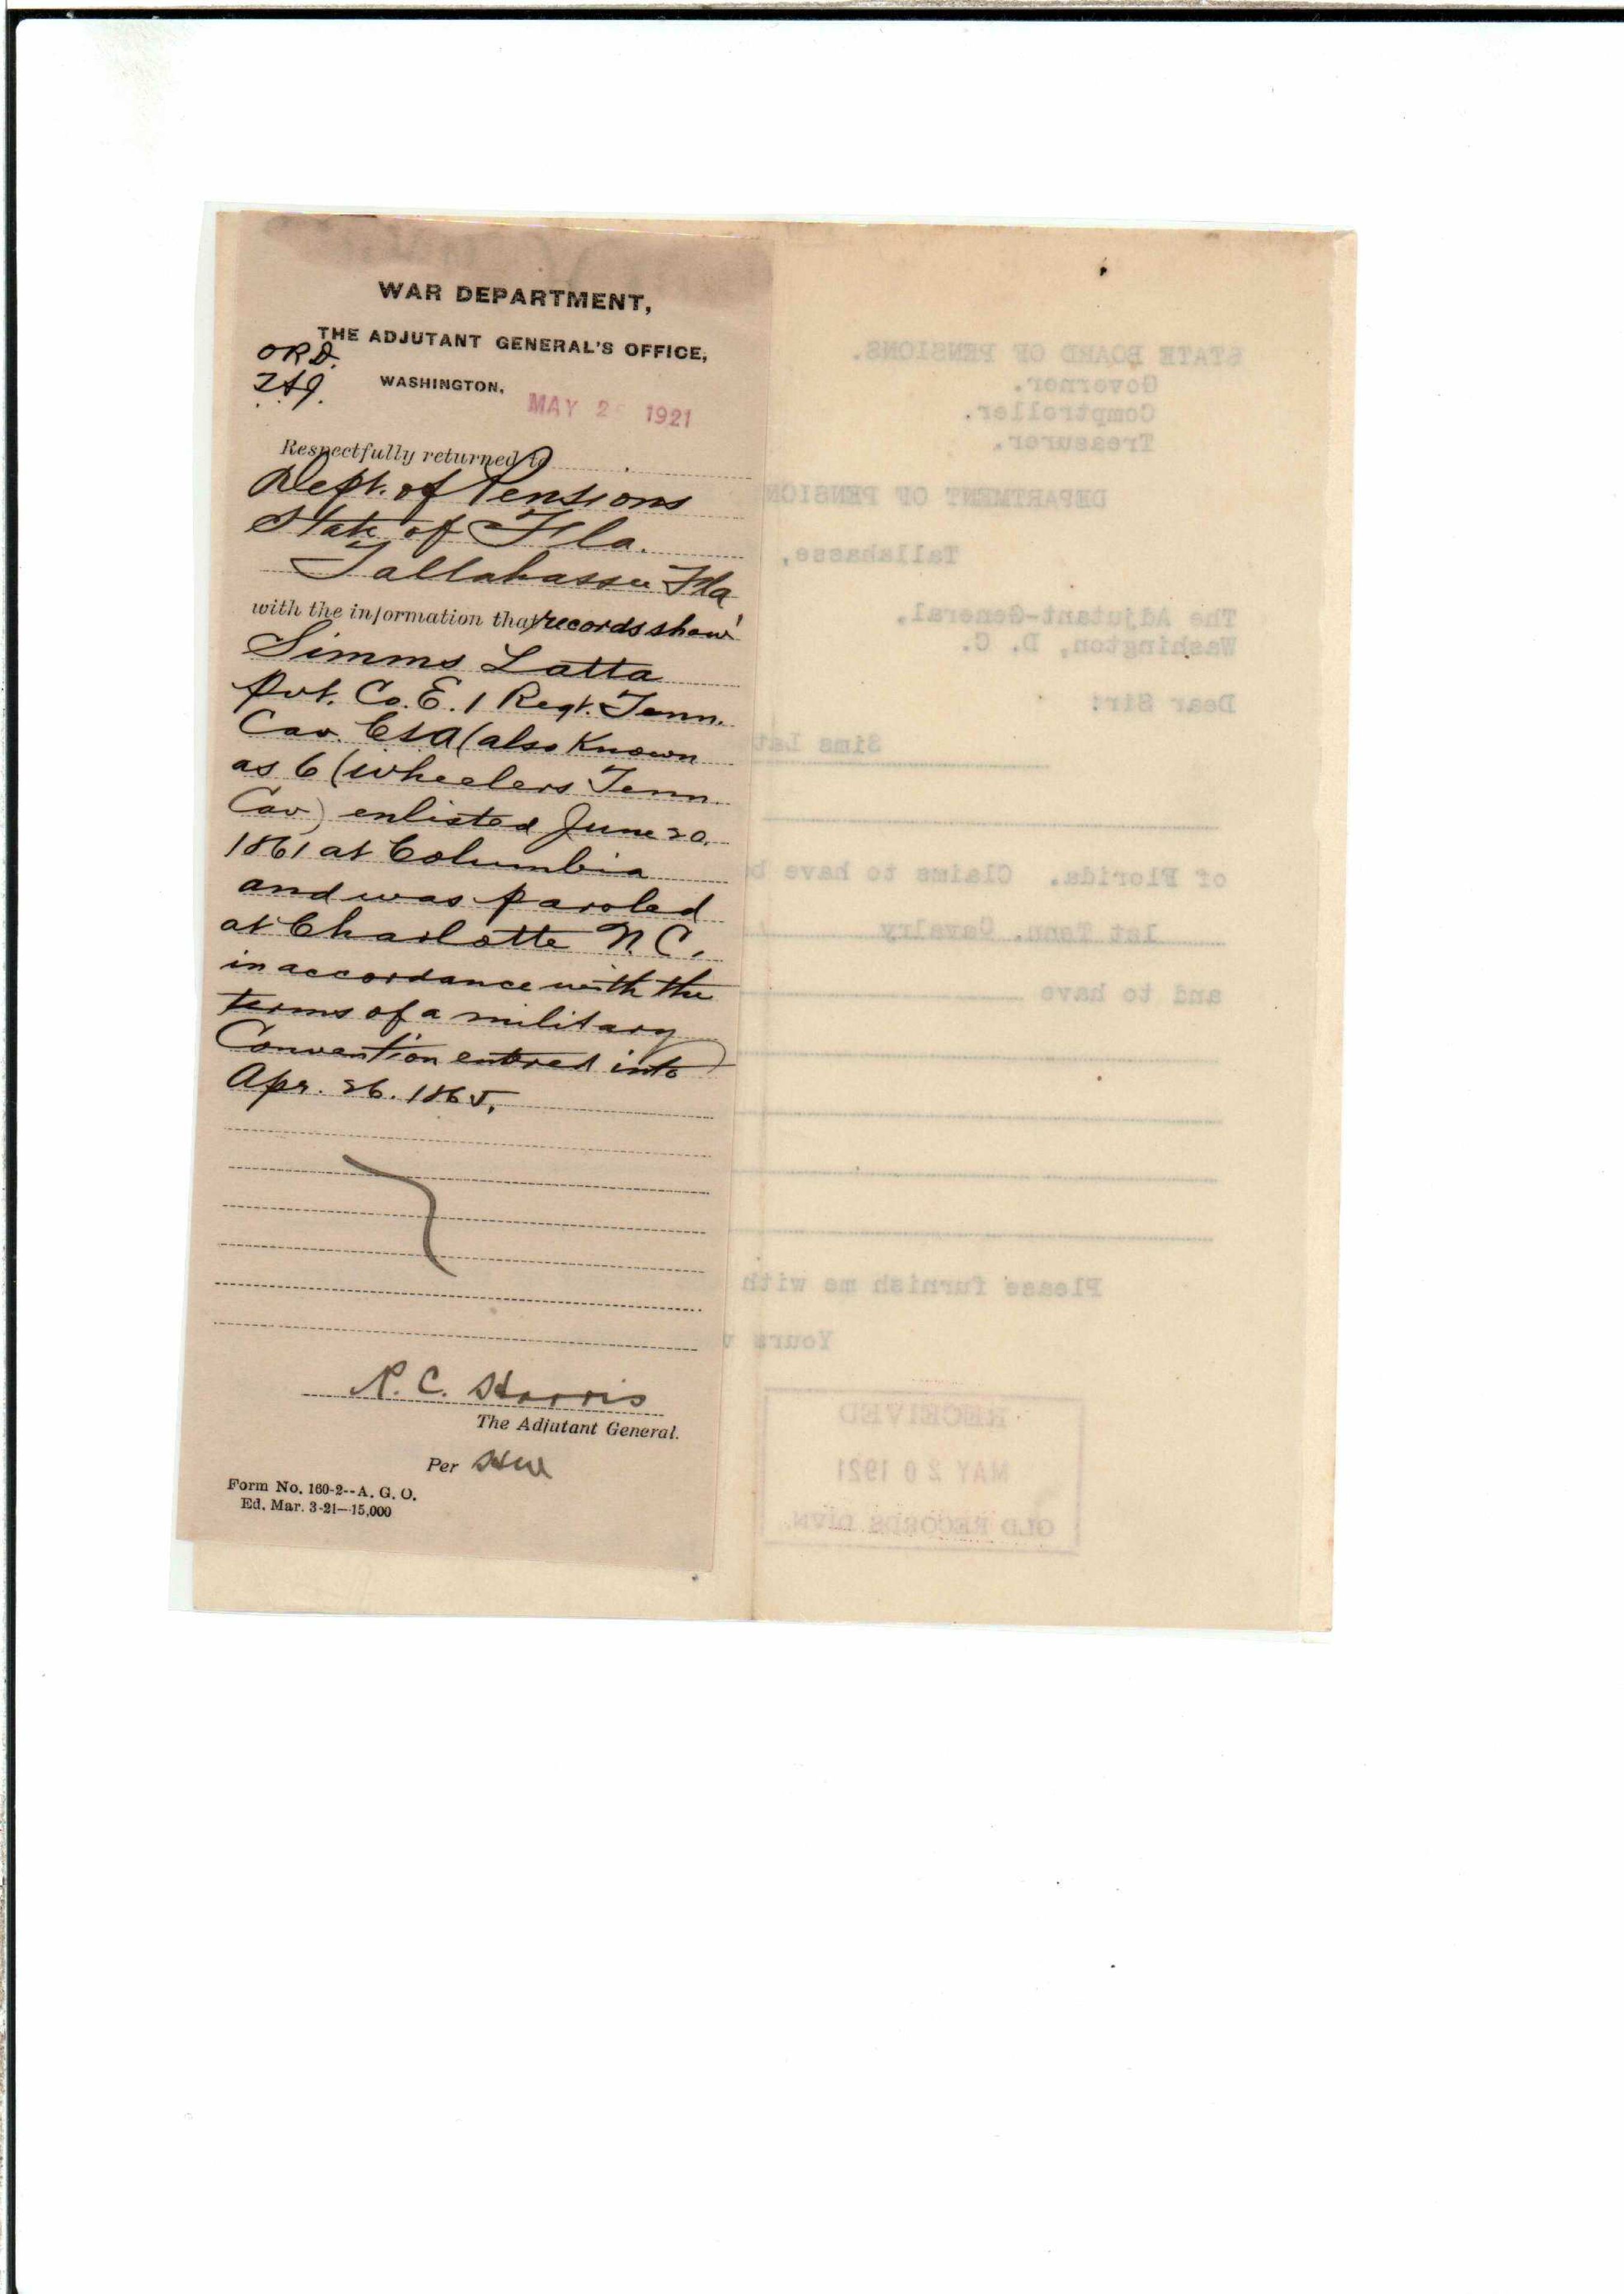 WAR DEPARTMENT,
THE ADJUTANT GENERAL'S OFFICE,
O R D.
WASHINGTON.
MAY 2 1921
Respectfully returned to
Dept. of Pensions
State of Fla.
Tallahassee Fla
with the information that records show
Simms Latta
Pvt. Co. E. 1 Regt. Tenn.
Cav. CSA (also Known
as 6 (Wheelers Tenn.
Cav) enlisted June 20.
1861 at Columbia
and was paroled
at Charlotte N. C.
in accordance with the
terms of a military
Convention entered into
Apr. 26. 1865.
P. C. Harris
The Adjutant General.
Per
Form No. 160-2--A. G. O.
Ed. Mar. 3-21—15,000
STATE BOARD OF PENSIONS.
Governor.
Comptroller.
Treasurer.
DEPARTMENT OF PENSION
Tallahassee,
The Adjutant-General,
Washington, D. C.
Dear Sir:
Sims Lat
of Florida. Claims to have b
1st Tenn. Cavalry
and to have
Please furnish me with
Yours v
RECEIVED
MAY 20 1921
OLD RECORDS DIVN.